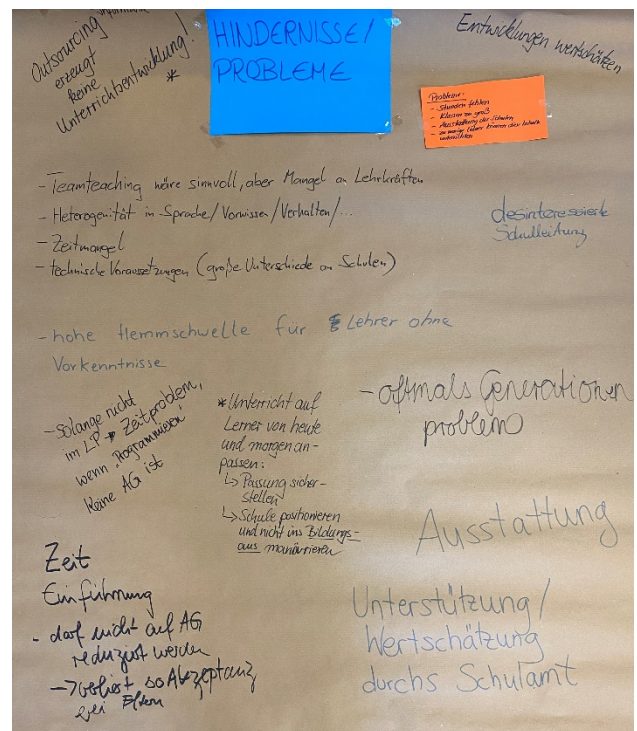 Outsourcing
erzeugt
keine
Unterrichtsentwicklung!
*
HINDERNISSE/
PROBLEME
Entwicklungen wertschätzen
Probleme:
- Stunden fehlen
- Klassen zu groß
- Ausstattung der Schulen
- zu wenige Lehrer können den Inhalt
- Teamteaching wäre sinnvoll, aber Mangel an Lehrkräften
- Heterogenität in Sprache/Vorwissen/Verhalten/...
- Zeitmangel
- technische Voraussetzungen (große Unterschiede an Schulen)
desinteressierte
Schulleitung
- hohe Hemmschwelle für Lehrer ohne
Vorkenntnisse
- solange nicht
im LP → Zeitproblem,
wenn „Programmieren"
keine AG ist
* Unterricht auf
Lerner von heute
und morgen an-
passen:
↳ Passung sicher-
stellen
↳ Schule positionieren
und nicht ins Bildungs-
aus manövrieren
- oftmals Generationen
problem
Ausstattung
Zeit
Einführung
- darf nicht auf AG
reduziert werden
-> verliert so Akzeptanz
bei Eltern
Unterstützung/
Wertschätzung
durchs Schulamt